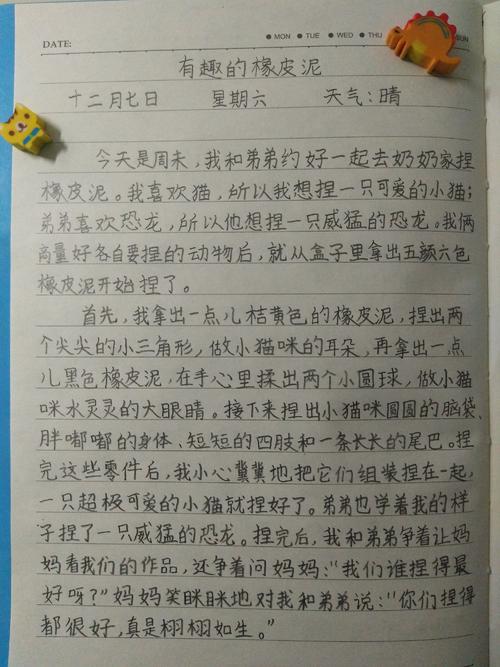 DATE: ● MON ● TUE ● WED ● THU SUN
有趣的橡皮泥
十二月七日 星期六 天气:晴
今天是周末,我和弟弟约好一起去奶奶家捏
橡皮泥。我喜欢猫,所以我想捏一只可爱的小猫;
弟弟喜欢恐龙,所以他想捏一只威猛的恐龙。我俩
商量好各自要捏的动物后,就从盒子里拿出五颜六色
橡皮泥开始捏了。
首先,我拿出一点儿桔黄色的橡皮泥,捏出两
个尖尖的小三角形,做小猫咪的耳朵,再拿出一点
儿黑色橡皮泥,在手心里揉出两个小圆球,做小猫
咪水灵灵的大眼睛。接下来捏出小猫咪圆圆的脑袋、
胖嘟嘟的身体、短短的四肢和一条长长的尾巴。捏
完这些零件后,我小心翼翼地把它们组装捏在一起,
一只超极可爱的小猫就捏好了。弟弟也学着我的样
子捏了一只威猛的恐龙。捏完后,我和弟弟争着让妈
妈看我们的作品,还争着问妈妈:“我们谁捏得最
好呀?”妈妈笑眯眯地对我和弟弟说:“你们捏得
都很好,真是栩栩如生。”